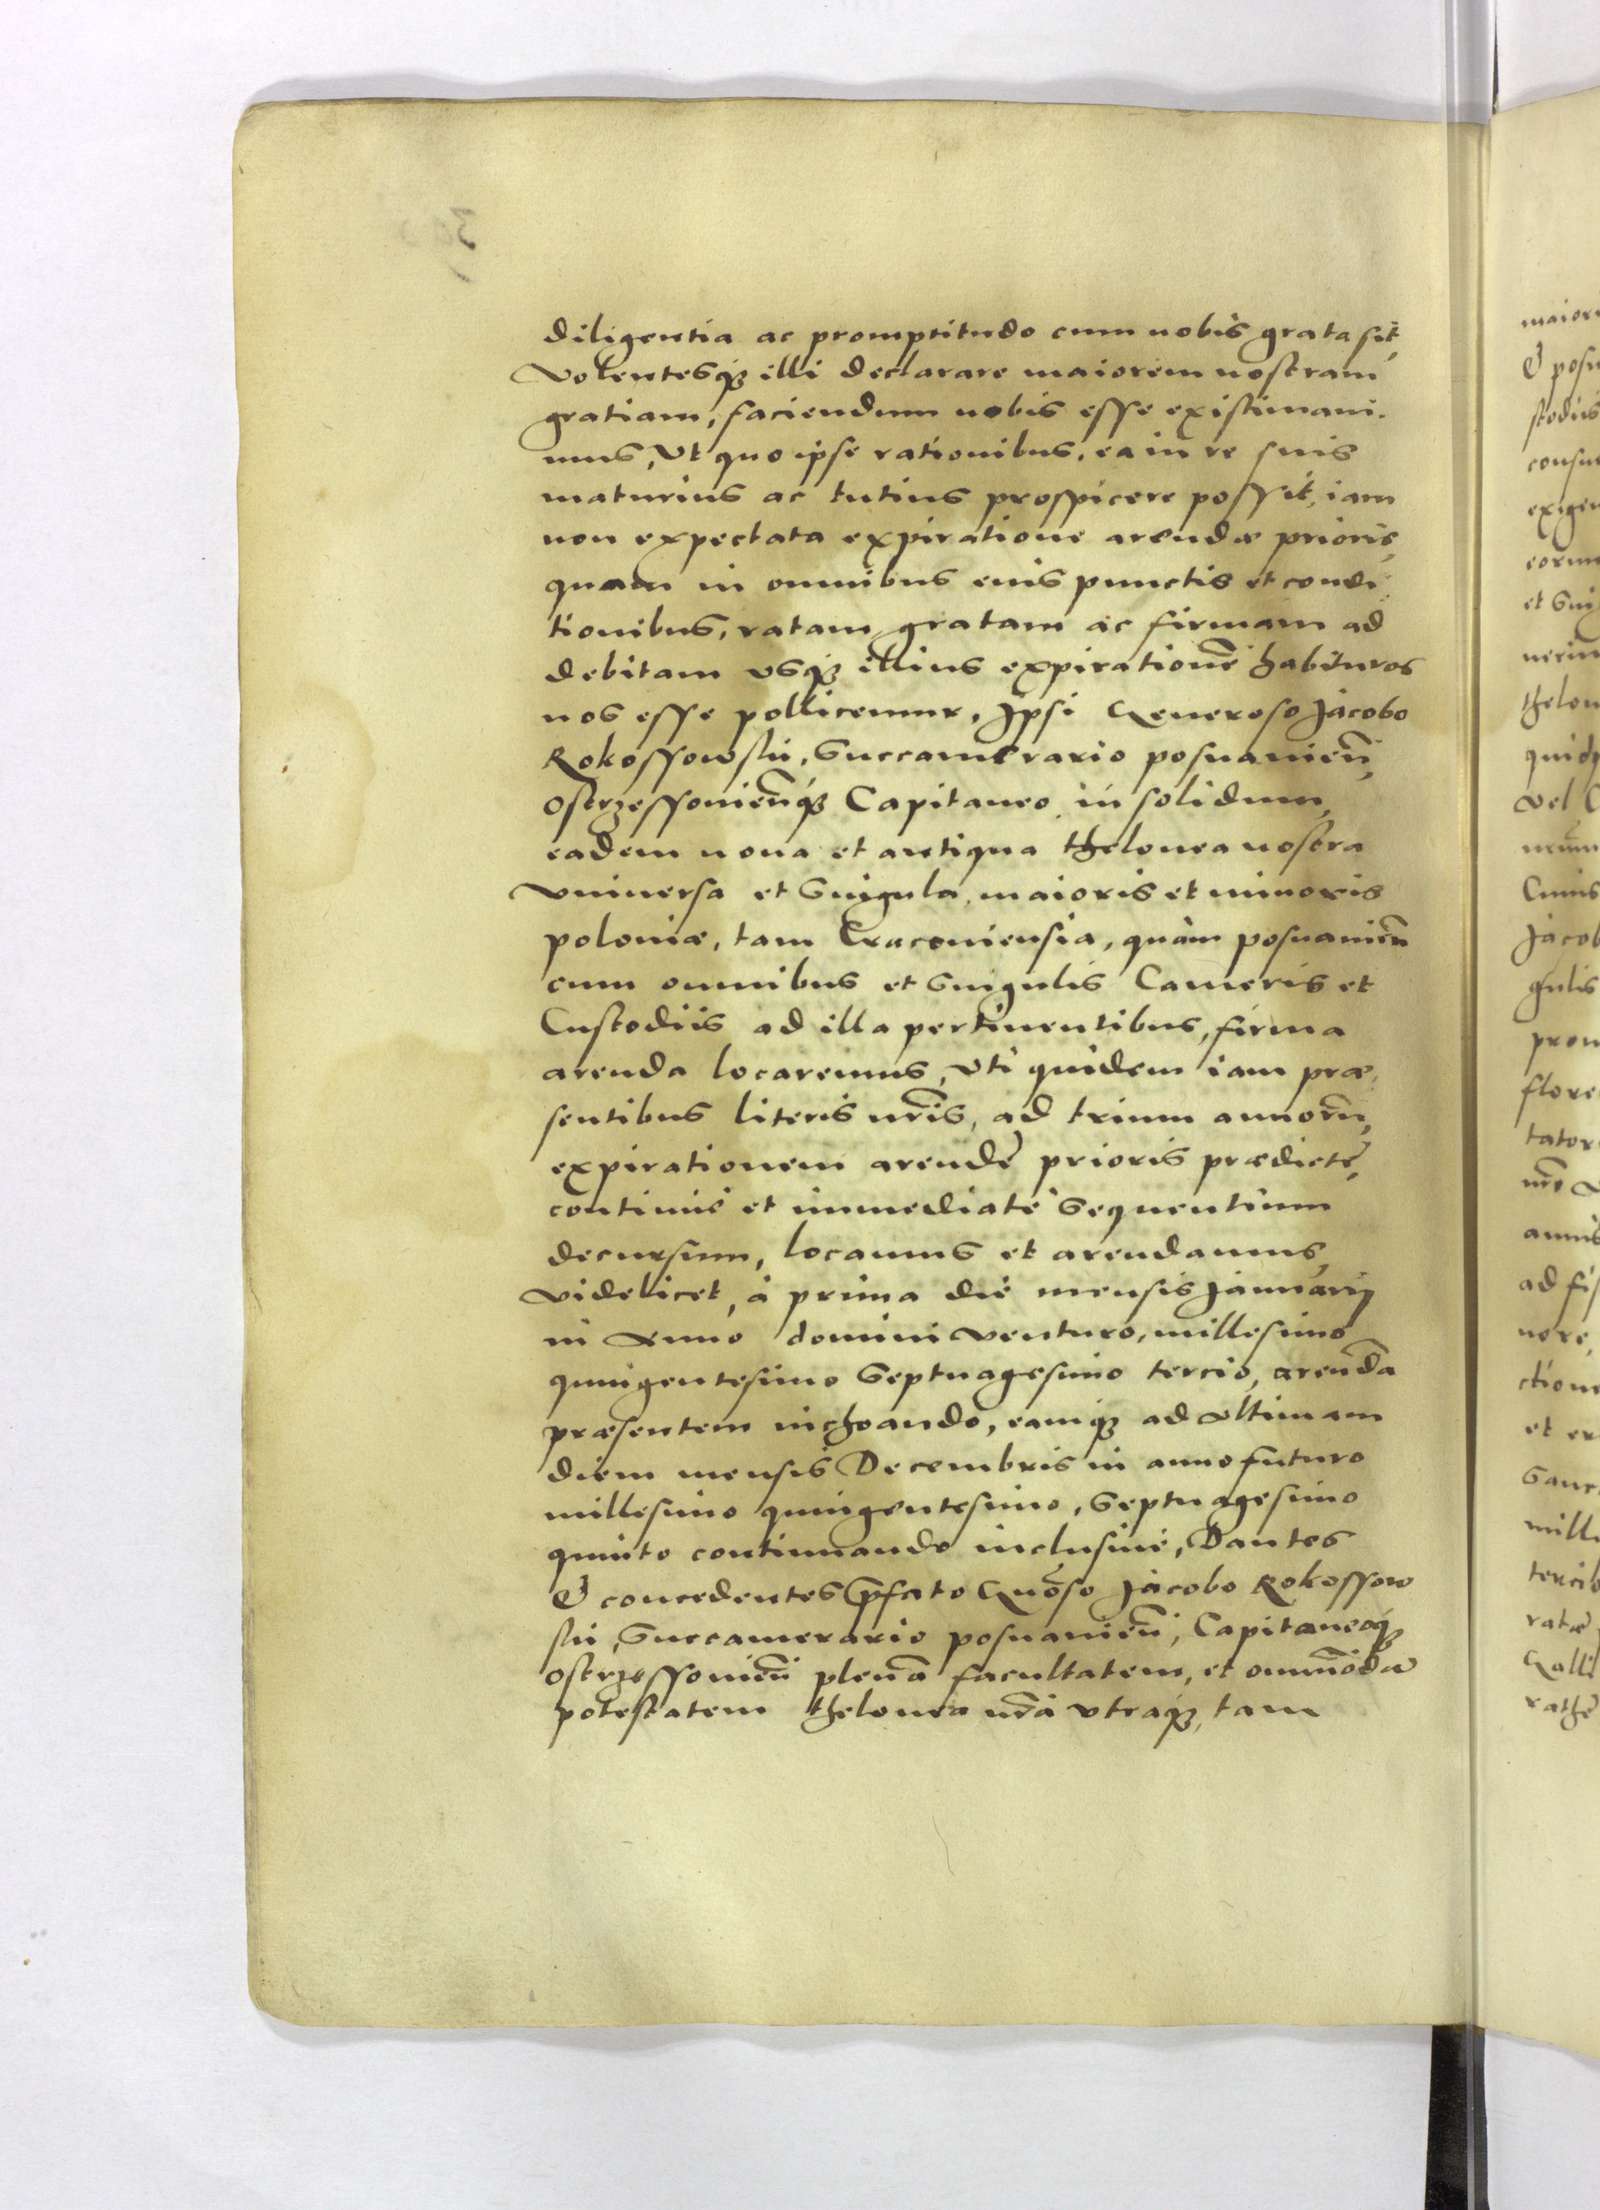 diligentia ac promptitudo cum nobis grata sit,
Volentesq₃ illi declarare maiorem nostram
gratiam, faciendum nobis esse existimaui-
mus, Vt quo ipse rationibus, ea in re suis
maturius ac tutius prospicere possit, iam
non expectata expiratione arendæ prioris,
quam in omnibus eius punctis et condi-
tionibus, ratam gratam ac firmam ad
debitam vsq₃ illius expirationẽ habituros
nos esse pollicemur, Ipsi Generoso Jacobo
Rokossowski, Succamerario posnanieñ,
Ostrzessonieñq₃ Capitaneo in solidum,
eadem noua et antiqua thelonea nostra
vniuersa et Singula, maioris et minoris
poloniæ, tam Cracouiensia, quàm posnanieñ
cum omnibus et Singulis Cameris et
Custodiis ad illa pertinentibus, firma
arenda locaremus, Vti quidem iam præ-
sentibus literis nr̃is, ad trium annorũ,
expirationem arendę prioris prædictę,
continuè et immediatè Sequentium
decursum, locamus et arendamus,
Videlicet, à prima die mensis Januarij
in Anno domini venturo, millesimo
quingentesimo Septuagesimo tercio, arendã
præsentem inchoando, eamq₃ ad vltimam
diem mensis Decembris in anno futuro
millesimo quingentesimo, Septuagesimo
quinto continuando inclusiuè, Dantes
& concedentes p̃fato Gnõso Jacobo Rokossow
ski, Succamerario posnanieñ, Capitaneoq₃
Ostrzessonieñ plenã facultatem, et omnĩodã
potestatem thelonea nr̃a vtraq₃, tam
maior
& posn
stodiis
consue
exigen
eorum
et Sing
thelon
vel C
Jacob
gulis
flore
tator
annis
ad fi
uore,
ction
et ex
mill
tercio
ratæ